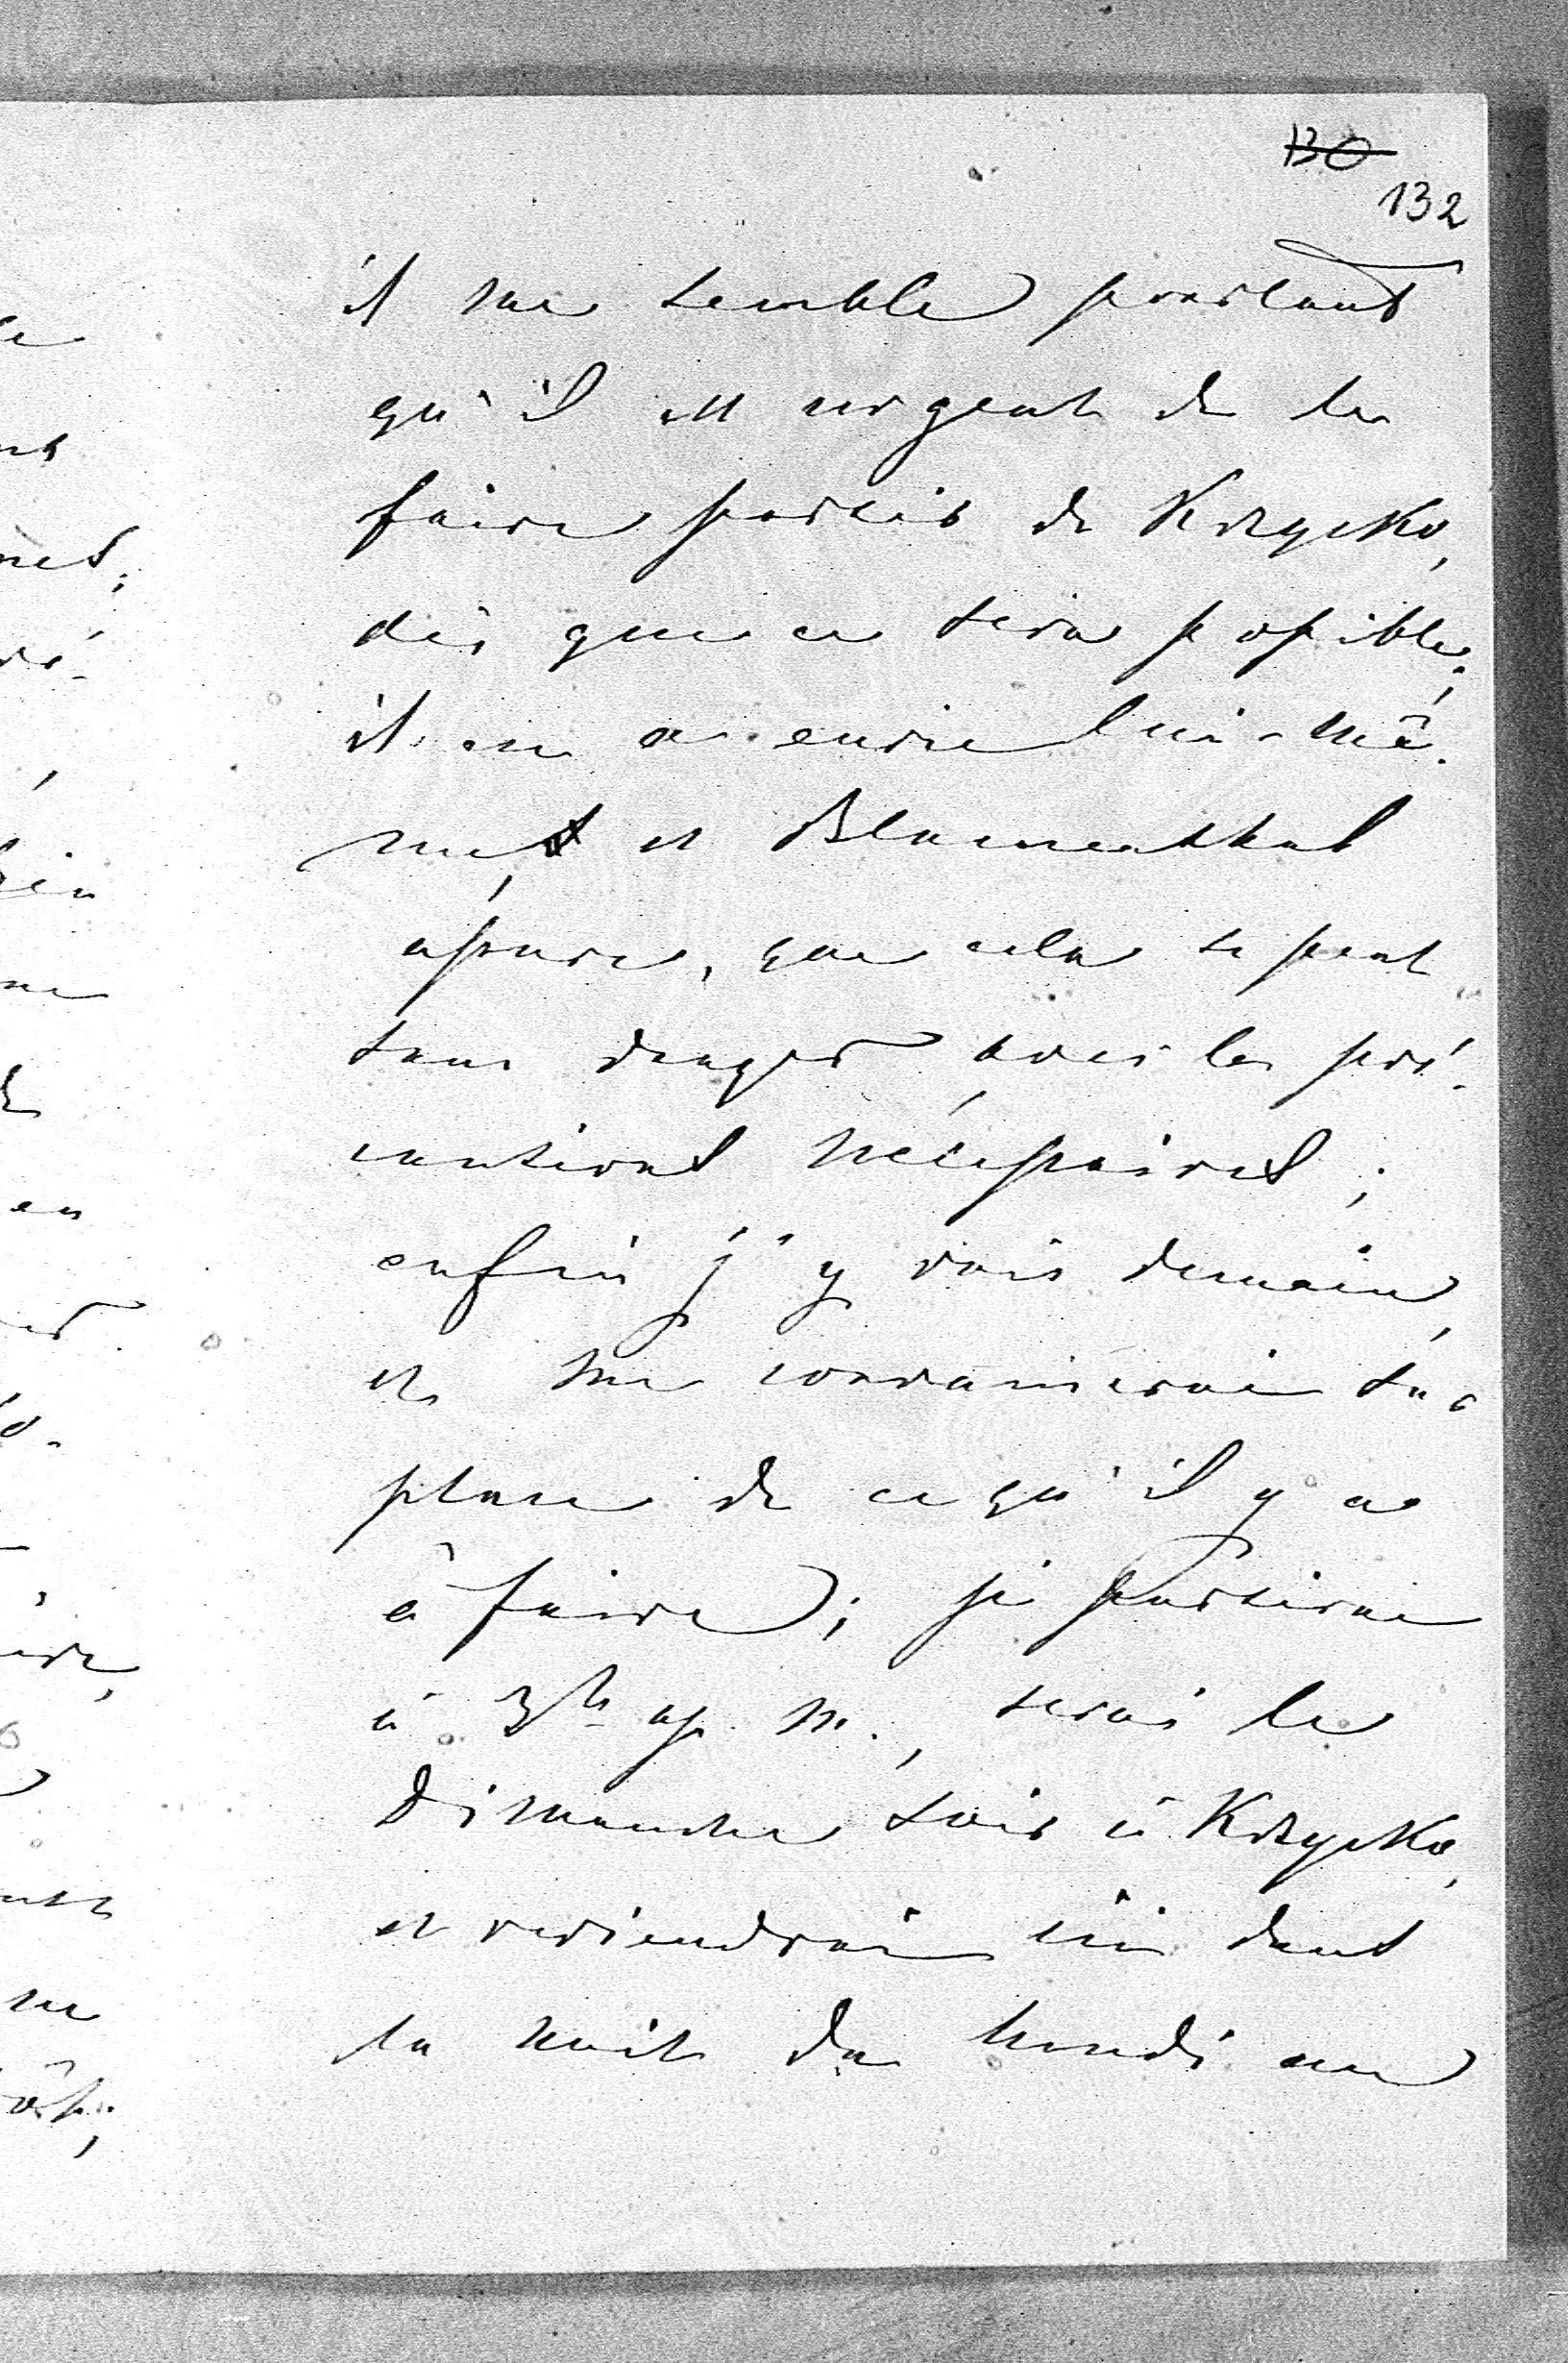 130
132
il me semble pourtant
qu'il est urgent de le
faire partir de Krzycko,
dès que ce sera possible;
il en a envie lui-mê-
me, et Blumenthal
assure, que cela se peut
sans danger, avec les pré-
cautions nécessaires;
enfin j'y vais demain,
et me convaincrai sur
place de ce qu'il y a
à faire; je partirai
à 3h ap. m., serai le
Dimanche soir à Krzycko,
et reviendrai ici dans
la nuit du lundi au